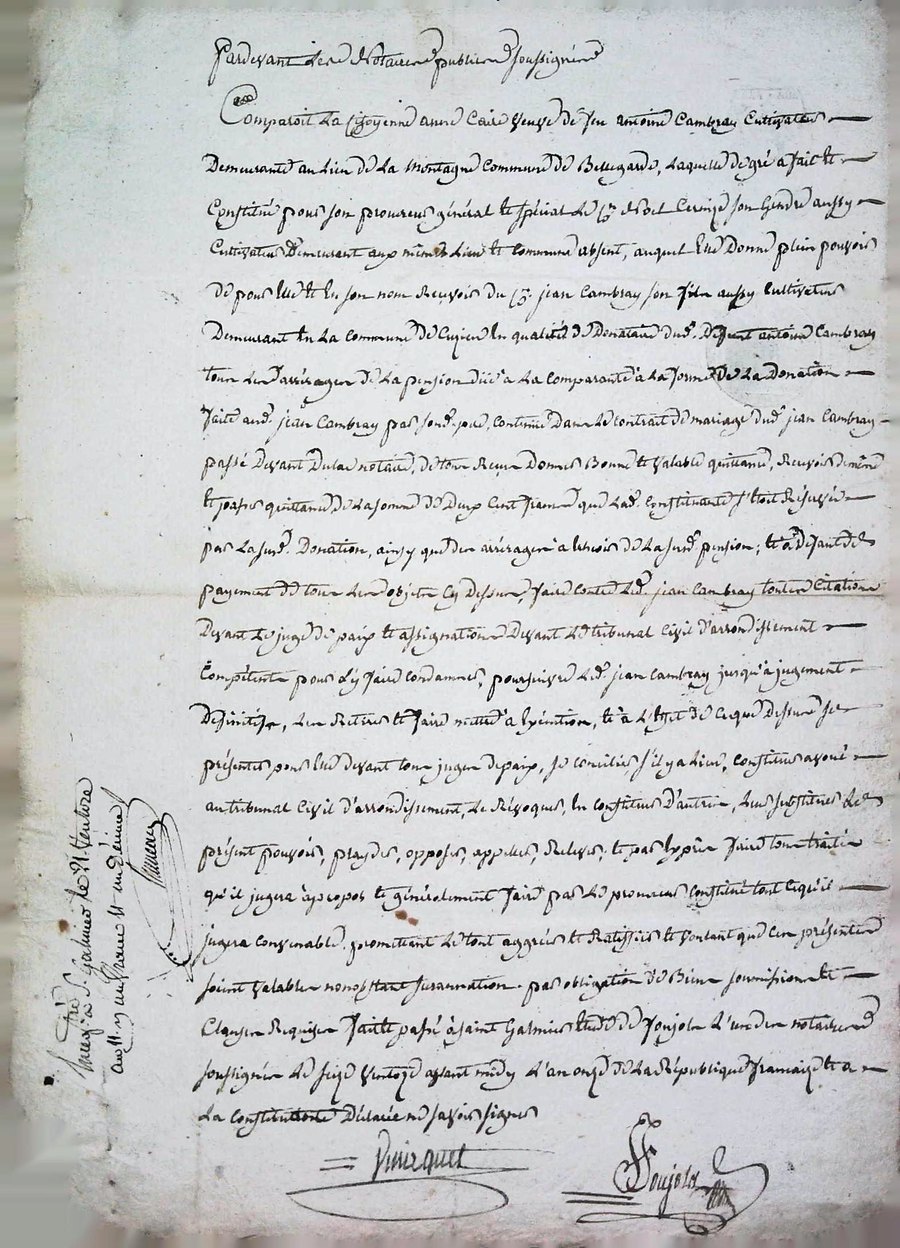 Pardevant les Notaires publics soussignés
Comparoit La Citoyenne anne Caire veuve de feu antoine Cambray Cultivateur
Demeurante au Lieu de La Montagne Commune de Bellegarde, Laquelle de gré a fait et
Constitué pour son procureur général et spécial Le Cen son Gendre aussy
Cultivateur Demeurant aux mêmes Lieu et Commune absent, auquel Elle Donne plein pouvoir
de pour Elle et En son nom Recevoir du Cen jean Cambray son fils aussy Cultivateur
Demeurant En La Commune de Cuzieu En qualité de Donataire dud. Defunt antoine Cambray
tous Les arrérages de La pension düe à La Comparante à La forme de La Donation
faite aud. jean Cambray par sond. pere, Contenue Dans Le Contrat de mariage dud. jean Cambray
passé Devant Dulac notaire, de tout Reçu Donner Bonne et valable quittance, Recevoir de même
et passer quittance de La somme de Deux Cent francs que Lad. Constituante s'Etoit Réservée
par La susd. Donation, ainsy que des arrérages à Echoir de La susd. pension; et à Defaut de
payement de tous Les objets Cy Dessus, faire Contre Led. jean Cambray toutes Citations
Devant Le juge de paix et assignations Devant Le tribunal Civil d'arrondissement
Compétent pour L'y faire Condamner, poursuivre Led. jean Cambray jusqu'à jugement
Définitif, Les Retirer et faire mettre à Exécution, et à L'Effet de Ce que Dessus se
présenter pour Elle devant tous juges de paix, se Concilier s'il y a Lieu, Constituer avoué
au tribunal Civil d'arrondissement, Le Révoquer, En Constituer D'autres, Leur substituer Le
présent pouvoir, playder, opposer, appeller, Relever, et par Exprès faire tous traités
qu'il jugera àpropos et généralement faire par Le procureur Constitué tout Ce qu'il
jugera Convenable, promettant Le tout aggréer et Ratiffier et voulant que Ces présentes
soient valables nonobstant surannation par obligation de Biens soumissions et
Clauses Requises fait et passé à saint Galmier Etude de foujols L'un des notaires
soussignés Le seize Ventoze avant midy L'an onze de La République française et a
La Constituante Déclaré ne savoir signer
foujols
Enregé à St. Galmier le 21 Ventose
an 11 reçu un franc et un décime